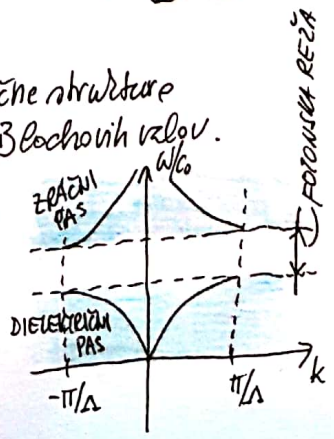 čne strukture
Blochovih valov.
ω/c₀
ZRAČNI
PAS
FOTONSKA REŽA
DIELEKTRIČNI
PAS
-π/Λ
π/Λ
k